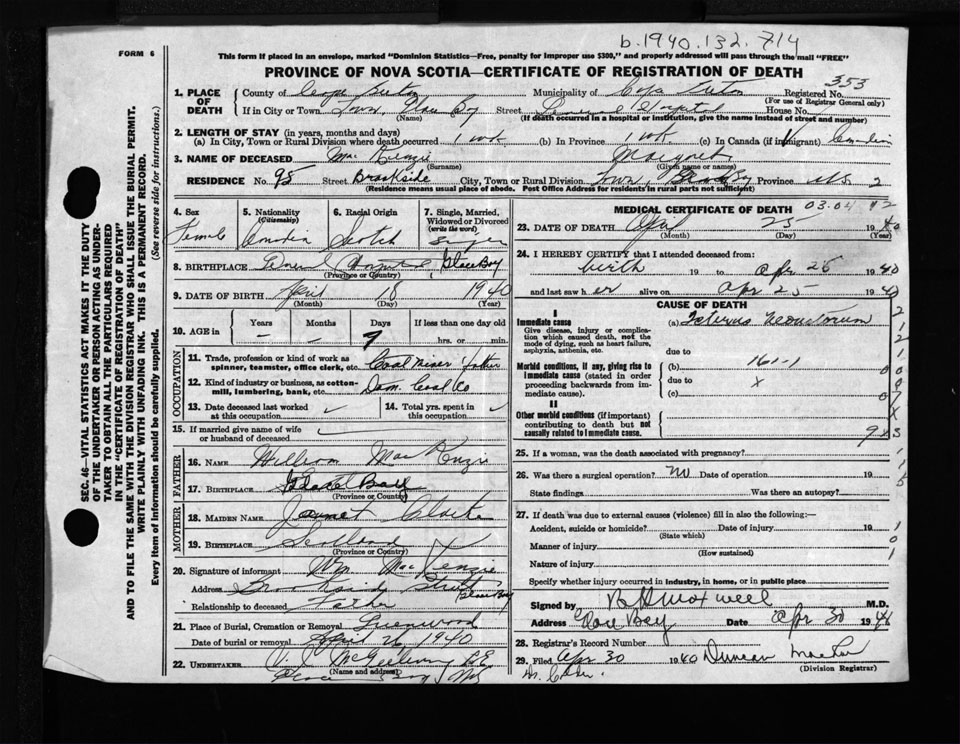 b.1940.132.714
FORM 6
This form if placed in an envelope, marked "Dominion Statistics—Free, penalty for improper use $300," and properly addressed will pass through the mail "FREE"
PROVINCE OF NOVA SCOTIA—CERTIFICATE OF REGISTRATION OF DEATH
353
1. PLACE OF DEATH
County of Cape Breton Municipality of Cape Breton Registered No.
(For use of Registrar General only)
If in City or Town Town, Glace Bay Street General Hospital House No.
(Name) (If death occurred in a hospital or institution, give the name instead of street and number)
2. LENGTH OF STAY (in years, months and days)
(a) In City, Town or Rural Division where death occurred 1 wk. (b) In Province 1 wk. (c) In Canada (if immigrant) Canadian
3. NAME OF DECEASED Mac Kenzie Margaret
(Surname) (Given name or names)
RESIDENCE No. 95 Street Brookside City, Town or Rural Division Town, Glace Bay Province N.S. 2
(Residence means usual place of abode. Post Office Address for residents in rural parts not sufficient)
4. Sex Female
5. Nationality (Citizenship) Canadian
6. Racial Origin Scotch
7. Single, Married, Widowed or Divorced (write the word) Single
8. BIRTHPLACE General Hospital Glace Bay
(Province or Country)
9. DATE OF BIRTH April 18 1940
(Month) (Day) (Year)
10. AGE in Years Months Days If less than one day old
– – 7 hrs. or min.
OCCUPATION
11. Trade, profession or kind of work as spinner, teamster, office clerk, etc. Coal Miner Father
12. Kind of industry or business, as cotton-mill, lumbering, bank, etc. Dom. Coal Co
13. Date deceased last worked at this occupation
14. Total yrs. spent in this occupation
15. If married give name of wife or husband of deceased
FATHER
16. NAME William Mac Kenzie
17. BIRTHPLACE Glace Bay
(Province or Country)
MOTHER
18. MAIDEN NAME Janet Clarke
19. BIRTHPLACE Scotland
(Province or Country)
20. Signature of informant Wm Mac Kenzie
Address Brookside Street Glace Bay
Relationship to deceased Father
21. Place of Burial, Cremation or Removal Greenwood
Date of burial or removal April 26 1940
22. UNDERTAKER
(Name and address)
Glace Bay NS
MEDICAL CERTIFICATE OF DEATH 03.04
23. DATE OF DEATH April 25 1940
(Month) (Day) (Year)
24. I HEREBY CERTIFY that I attended deceased from:
birth 19 to Apr 25 1940
and last saw her alive on Apr 25 1940
CAUSE OF DEATH
I
Immediate cause
Give disease, injury or complication which caused death, not the mode of dying, such as heart failure, asphyxia, asthenia, etc.
(a) Icterus Neonatorum
due to
161-1
Morbid conditions, if any, giving rise to immediate cause (stated in order proceeding backwards from immediate cause).
(b)
due to x
(c)
II
Other morbid conditions (if important) contributing to death but not causally related to immediate cause.
25. If a woman, was the death associated with pregnancy?
26. Was there a surgical operation? No Date of operation 19
State findings Was there an autopsy?
27. If death was due to external causes (violence) fill in also the following:—
Accident, suicide or homicide? Date of injury 19
(State which)
Manner of injury
(How sustained)
Nature of injury
Specify whether injury occurred in industry, in home, or in public place
Signed by M.D.
Address Glace Bay Date Apr 30 1940
28. Registrar's Record Number
29. Filed Apr 30 1940 Duncan
(Division Registrar)
SEC. 46—VITAL STATISTICS ACT MAKES IT THE DUTY
OF THE UNDERTAKER OR PERSON ACTING AS UNDER-
TAKER TO OBTAIN ALL THE PARTICULARS REQUIRED
IN THE "CERTIFICATE OF REGISTRATION OF DEATH"
AND TO FILE THE SAME WITH THE DIVISION REGISTRAR WHO SHALL ISSUE THE BURIAL PERMIT.
WRITE PLAINLY WITH UNFADING INK. THIS IS A PERMANENT RECORD.
Every item of information should be carefully supplied. (See reverse side for instructions.)